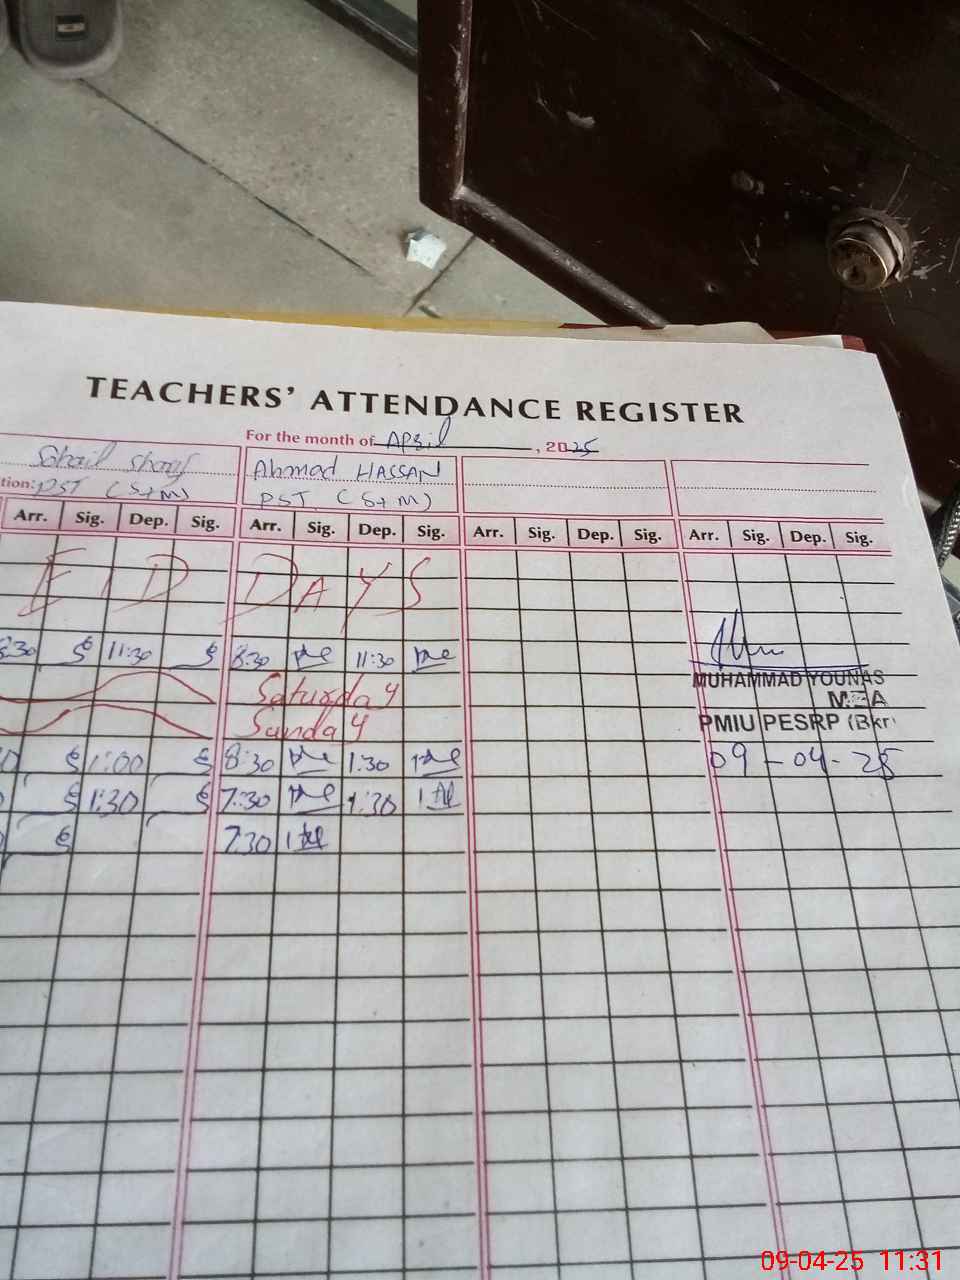 TEACHERS' ATTENDANCE REGISTER
For the month of April, 2025
Sohail Sharif Ahmad HASSAN
tion: PST (S+M) PST (S+M)
Arr. Sig. Dep. Sig. Arr. Sig. Dep. Sig. Arr. Sig. Dep. Sig. Arr. Sig. Dep. Sig.
EID DAYS
8:30 11:30 8:30 11:30
Saturday
MUHAMMAD YOUNAS
MEA
Sunday
PMIU PESRP (Bkr)
1:00 8:30 1:30
09-04-25
1:30 7:30 1:30
7:30
09-04-25 11:31